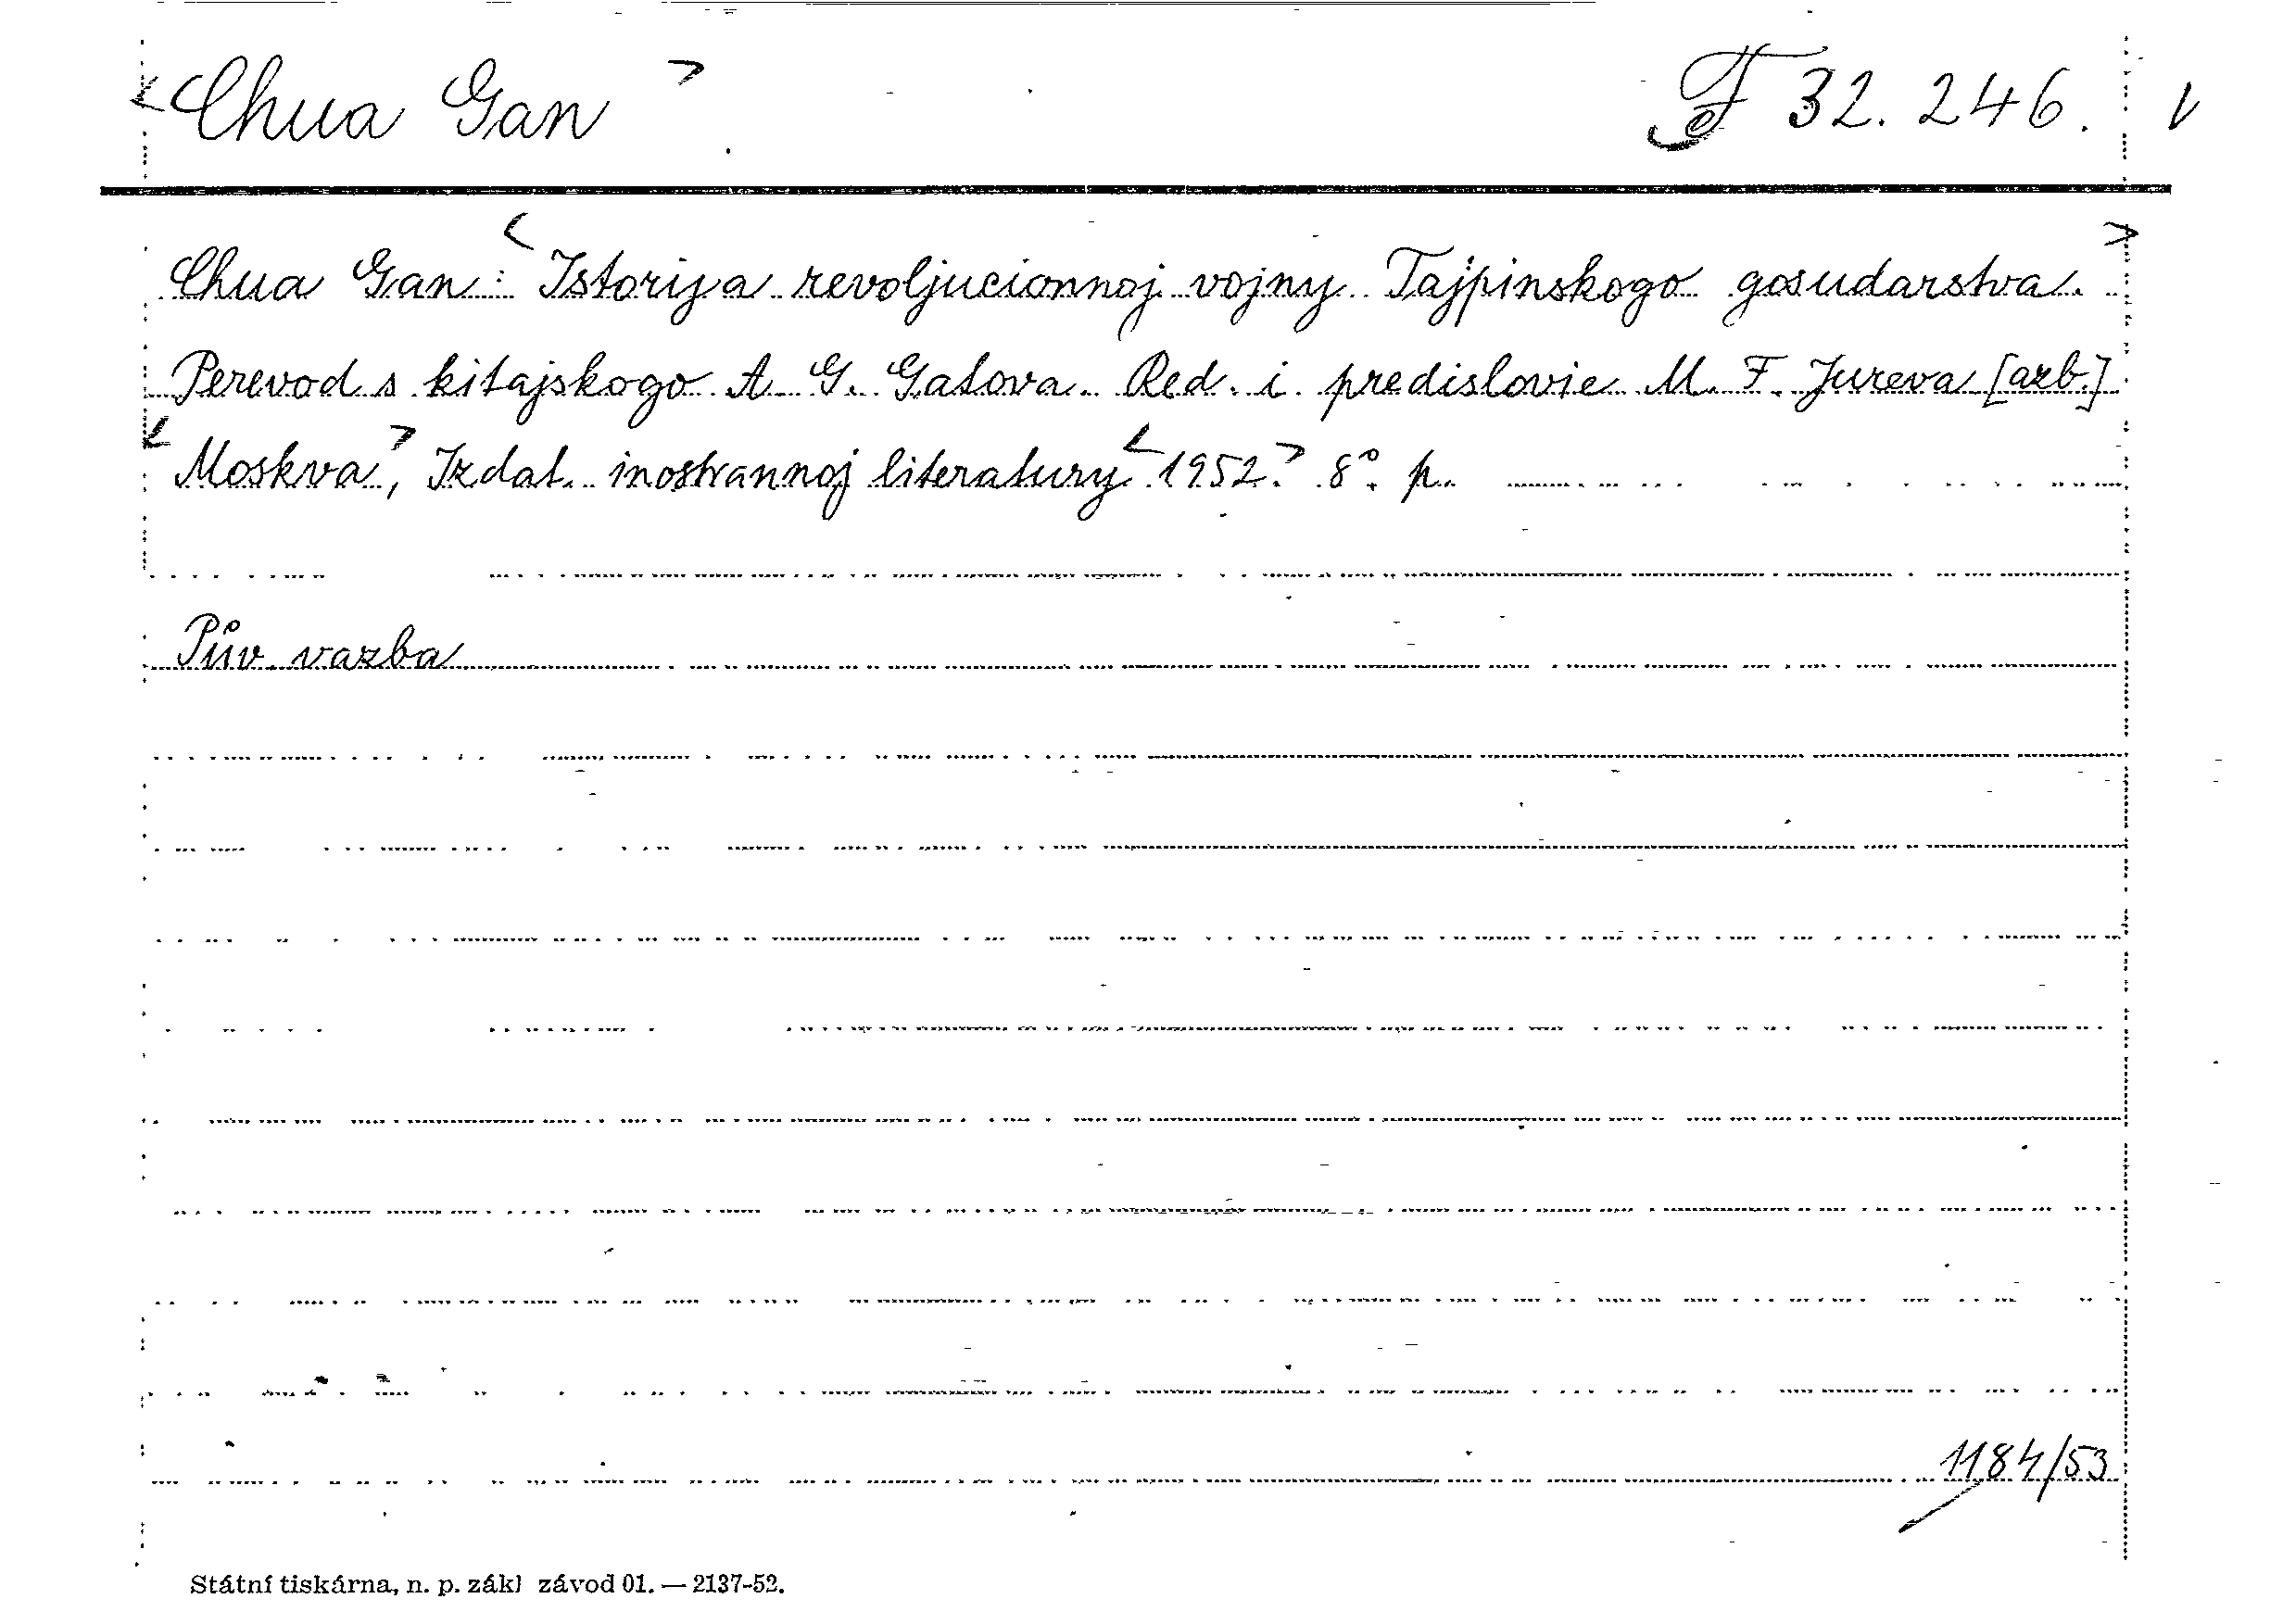 <Chua Gan> F 32.246. V
Chua Gan: <Istorija revoljucionnoj vojny Tajpinskogo gosudarstva.>
Perevod s kitajskogo A. G. Gatova. Red. i predislovie M. F. Jureva [azb.]
<Moskva>, Izdat. inostrannoj literatury <1952.> 8°. p.
Pův. vazba
1184/53
Státní tiskárna, n. p. zákl závod 01. — 2137-52.